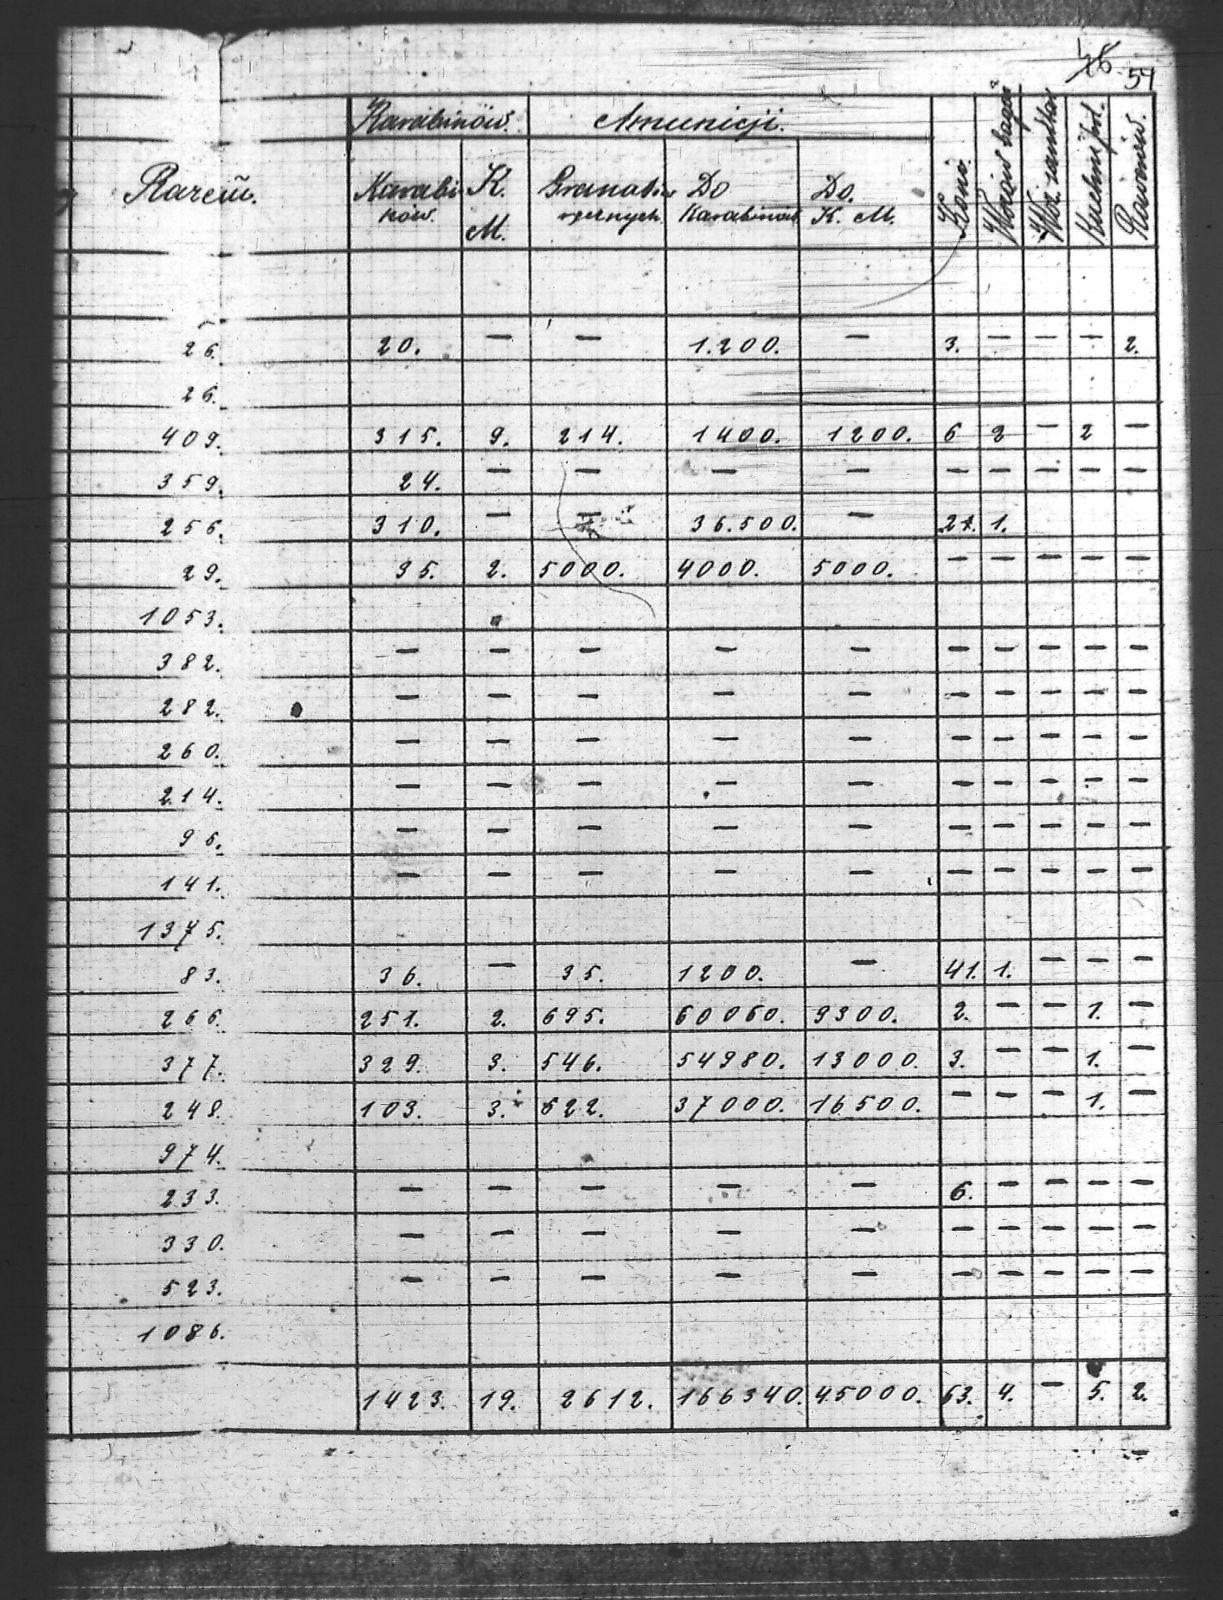 48
54
Karabinów. Amunicji.
Razem. Karabinów. K. M. Granatów ręcznych. Do Karabinów Do. K. M. Koni. Wozów bagaż Kuchni pol. Rowerów.
26. 20. — — 1.200. — 3. — — — 2.
26.
409. 315. 9. 214. 1400. 1200. 6 2 — 2 —
359. 24. — — — — — — — — —
256. 310. — — 36.500. — 21. 1.
29. 35. 2. 5000. 4000. 5000. — — — — —
1053.
382. — — — — — — — — — —
282. — — — — — — — — — —
260. — — — — — — — — — —
214. — — — — — — — — — —
96. — — — — — — — — — —
141. — — — — — — — — — —
1375.
83. 36. — 35. 1200. — 41. 1. — — —
266. 251. 2. 695. 60060. 9300. 2. — — 1. —
377. 329. 3. 546. 54980. 13000. 3. — — 1. —
248. 103. 3. 622. 37000. 16500. — — — 1. —
974.
233. — — — — — 6. — — — —
330. — — — — — — — — — —
523. — — — — — — — — — —
1086.
1423. 19. 2612. 166340. 45000. 63. 4. — 5. 2.